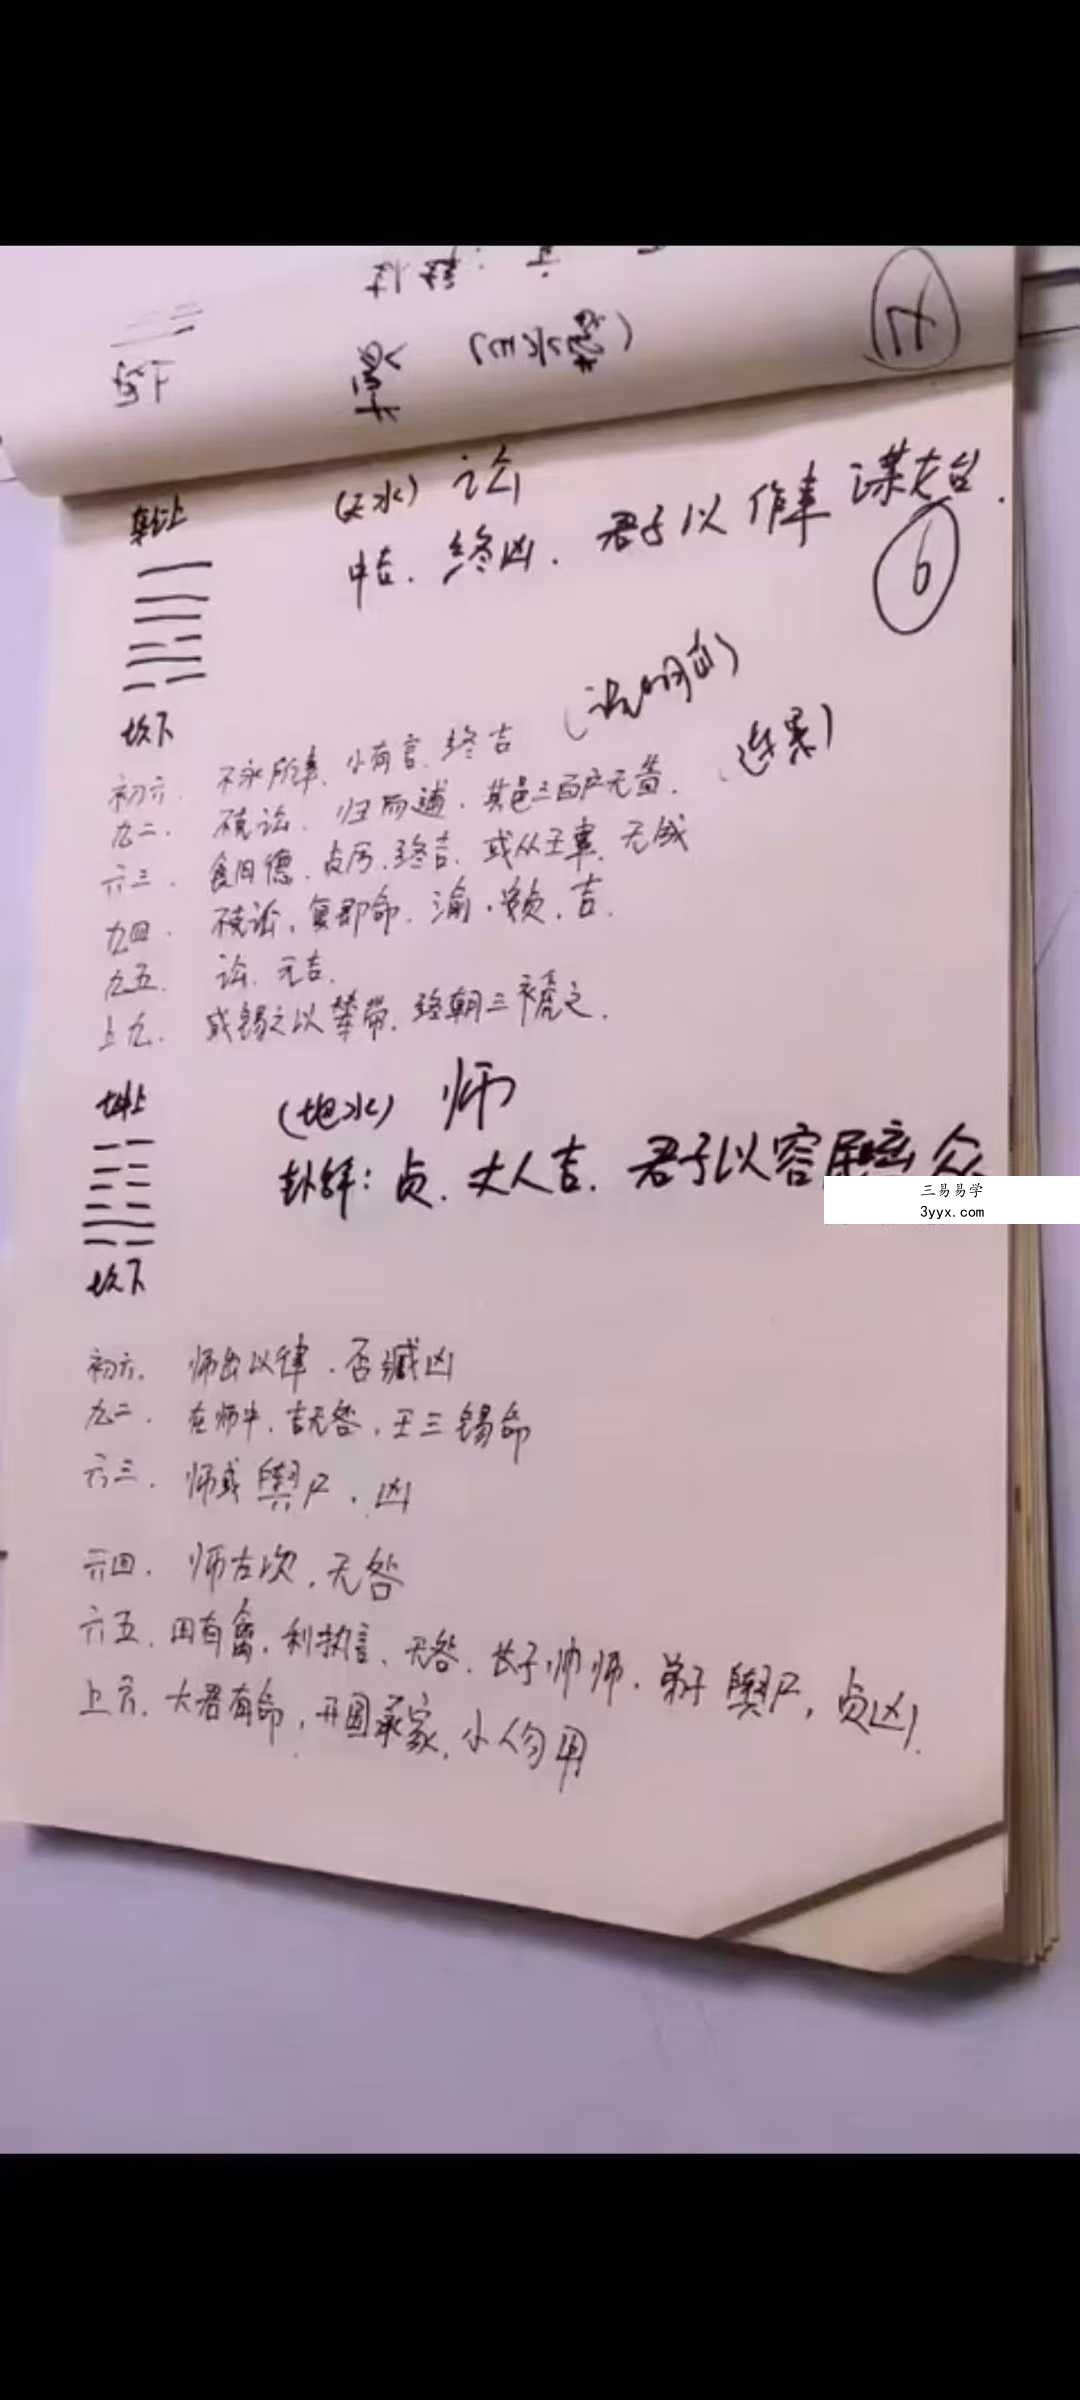 乾上
(天水) 讼
中吉. 终凶. 君子以作事谋先始.
6
坎下
初六. 不永所事、小有言、终吉
九二. 不克讼、归而逋、其邑三百户无眚.
六三. 食旧德、贞厉、终吉. 或从王事、无成
九四. 不克讼、复即命、渝、安贞、吉.
九五. 讼、元吉.
上九. 或锡之以鞶带、终朝三褫之.
坤上
(地水) 师
卦辞: 贞. 丈人吉. 君子以容民畜众
三易易学
3yyx.com
坎下
初六. 师出以律. 否臧凶
九二. 在师中. 吉无咎. 王三锡命
六三. 师或舆尸. 凶
六四. 师左次. 无咎
六五. 田有禽. 利执言、无咎. 长子帅师. 弟子舆尸, 贞凶.
上六. 大君有命, 开国承家. 小人勿用